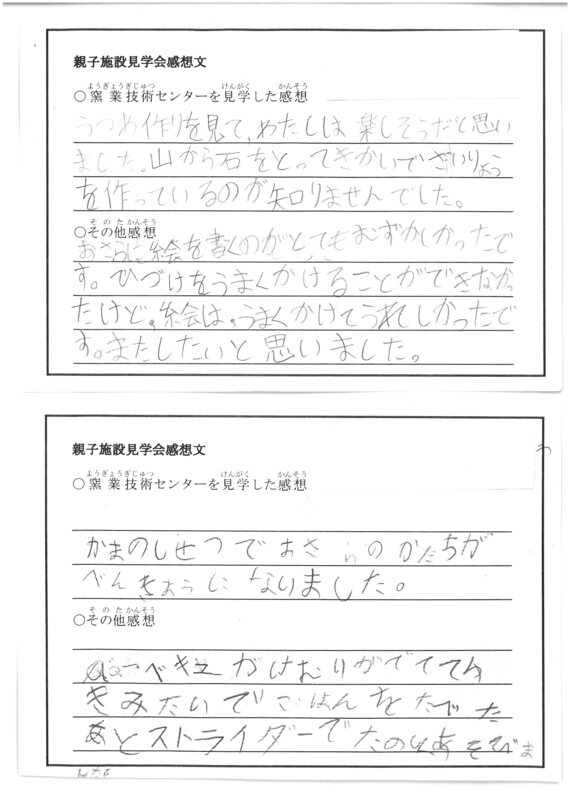 親子施設見学会感想文
○窯業技術センターを見学した感想
うつわ作りを見て、わたしは楽しそうだと思い
ました。山から石をとってきかいでざいりょう
を作っているのが知りませんでした。
○その他感想
おさらに絵を書くのがとてもむずかしかったで
す。ひづけをうまくかけることができなかっ
たけど、絵は、うまくかけてうれしかったで
す。またしたいと思いました。
親子施設見学会感想文
○窯業技術センターを見学した感想
かまのしせつでおさらのかたちが
べんきょうになりました。
○その他感想
バーベキュがけむりがでてて
きみたいでごはんをたべた
あとストライダーでたのしくあそびま
した